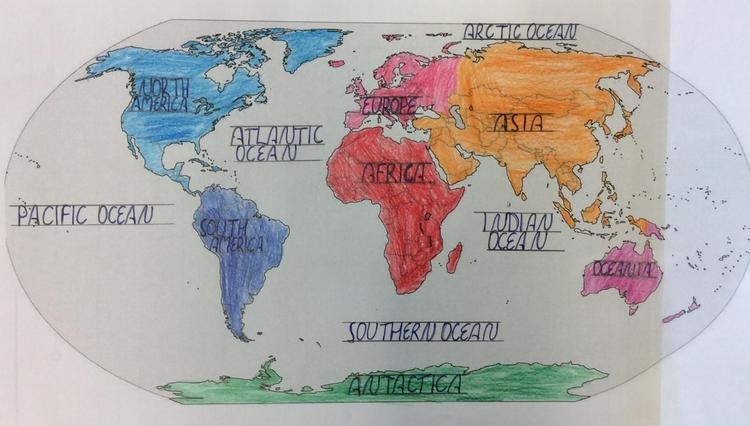 ARCTIC OCEAN
NORTH
AMERICA
EUROPE
ASIA
ATLANTIC
OCEAN
AFRICA
PACIFIC OCEAN
SOUTH
AMERICA
INDIAN
OCEAN
OCEANIA
SOUTHERN OCEAN
ANTACTICA